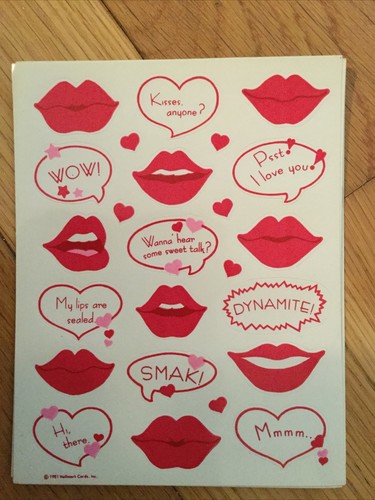 Kisses,
anyone?
WOW!
Psst!
I love you!
Wanna' hear
some sweet talk?
My lips are
sealed.
DYNAMITE!
SMAK!
Hi,
there.
Mmmm..
© 1981 Hallmark Cards, Inc.